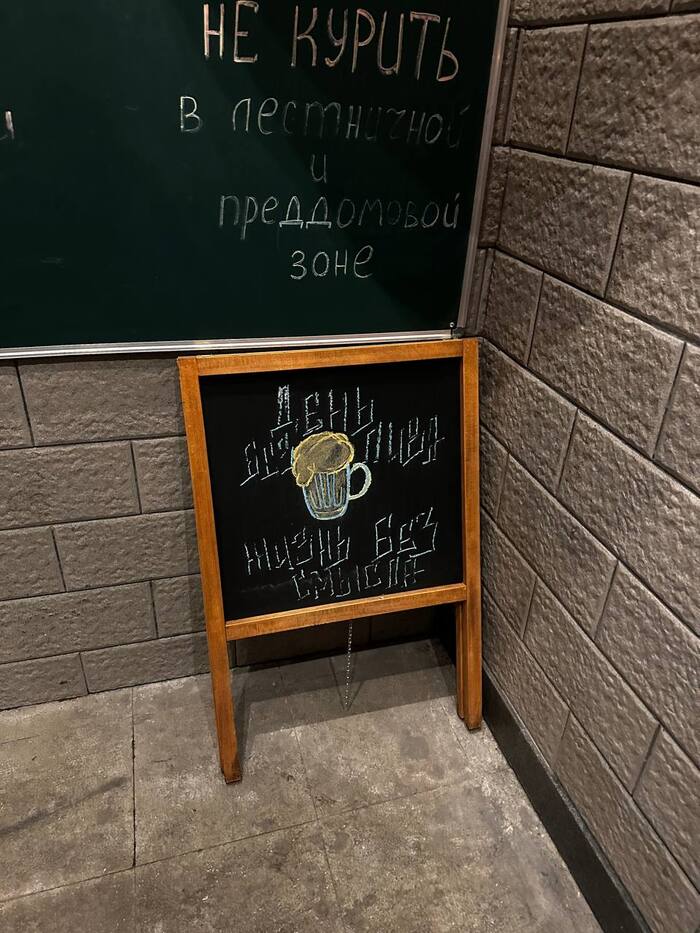 НЕ КУРИТЬ
в лестничной
и
преддомовой
зоне
День
без пива
жизнь без
смысла